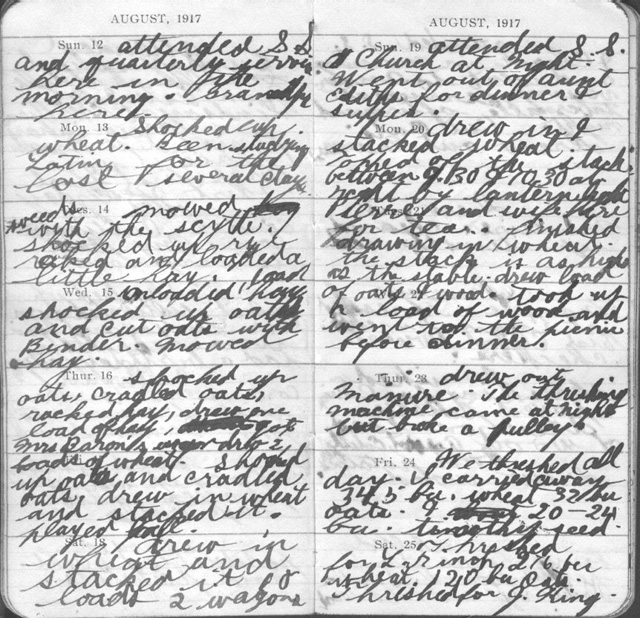 AUGUST, 1917
Sun. 12 attended S. S.
and quarterly service
here in the
morning.
here
Mon. 13 Shocked up
wheat. Been studying
Latin for the
last several days
Tues. 14 mowed
weeds with the scythe.
shocked up rye
raked and loaded a
little hay. load
Wed. 15 unloaded hay
shocked up oats
and cut oats with
Binder. Mowed
hay.
Thur. 16 shocked up
oats, cradled oats,
racked hay, drew one
load of hay, got
Mrs Baron's drew 2
loads of wheat. Shocked
up oats and cradled
oats, drew in wheat
and stacked it.
played ball.
Sat. 18 drew in
wheat and
stacked it 10
loads 2 wagons
AUGUST, 1917
Sun. 19 attended S. S.
& Church at night.
Went out of aunt
for dinner &
supper.
Mon. 20 drew in &
stacked wheat.
topped off the stack
between 9.30 & 10.30 at
night by lantern light
and wife here
for tea. finished
drawing in wheat.
the stack is as high
as the stable. drew load
of oats & wood took up
a load of wood and
went to the picnic
before dinner.
Thur. 23 drew out
manure The threshing
machine came at night
but broke a pulley.
Fri. 24 We threshed all
day. I carried away
345 bu. wheat 32 bu
oats. 9 20-24
bu. timothy seed.
Sat. 25 Thrished
for
wheat. 120 bu Oats.
Thrished for J. King.